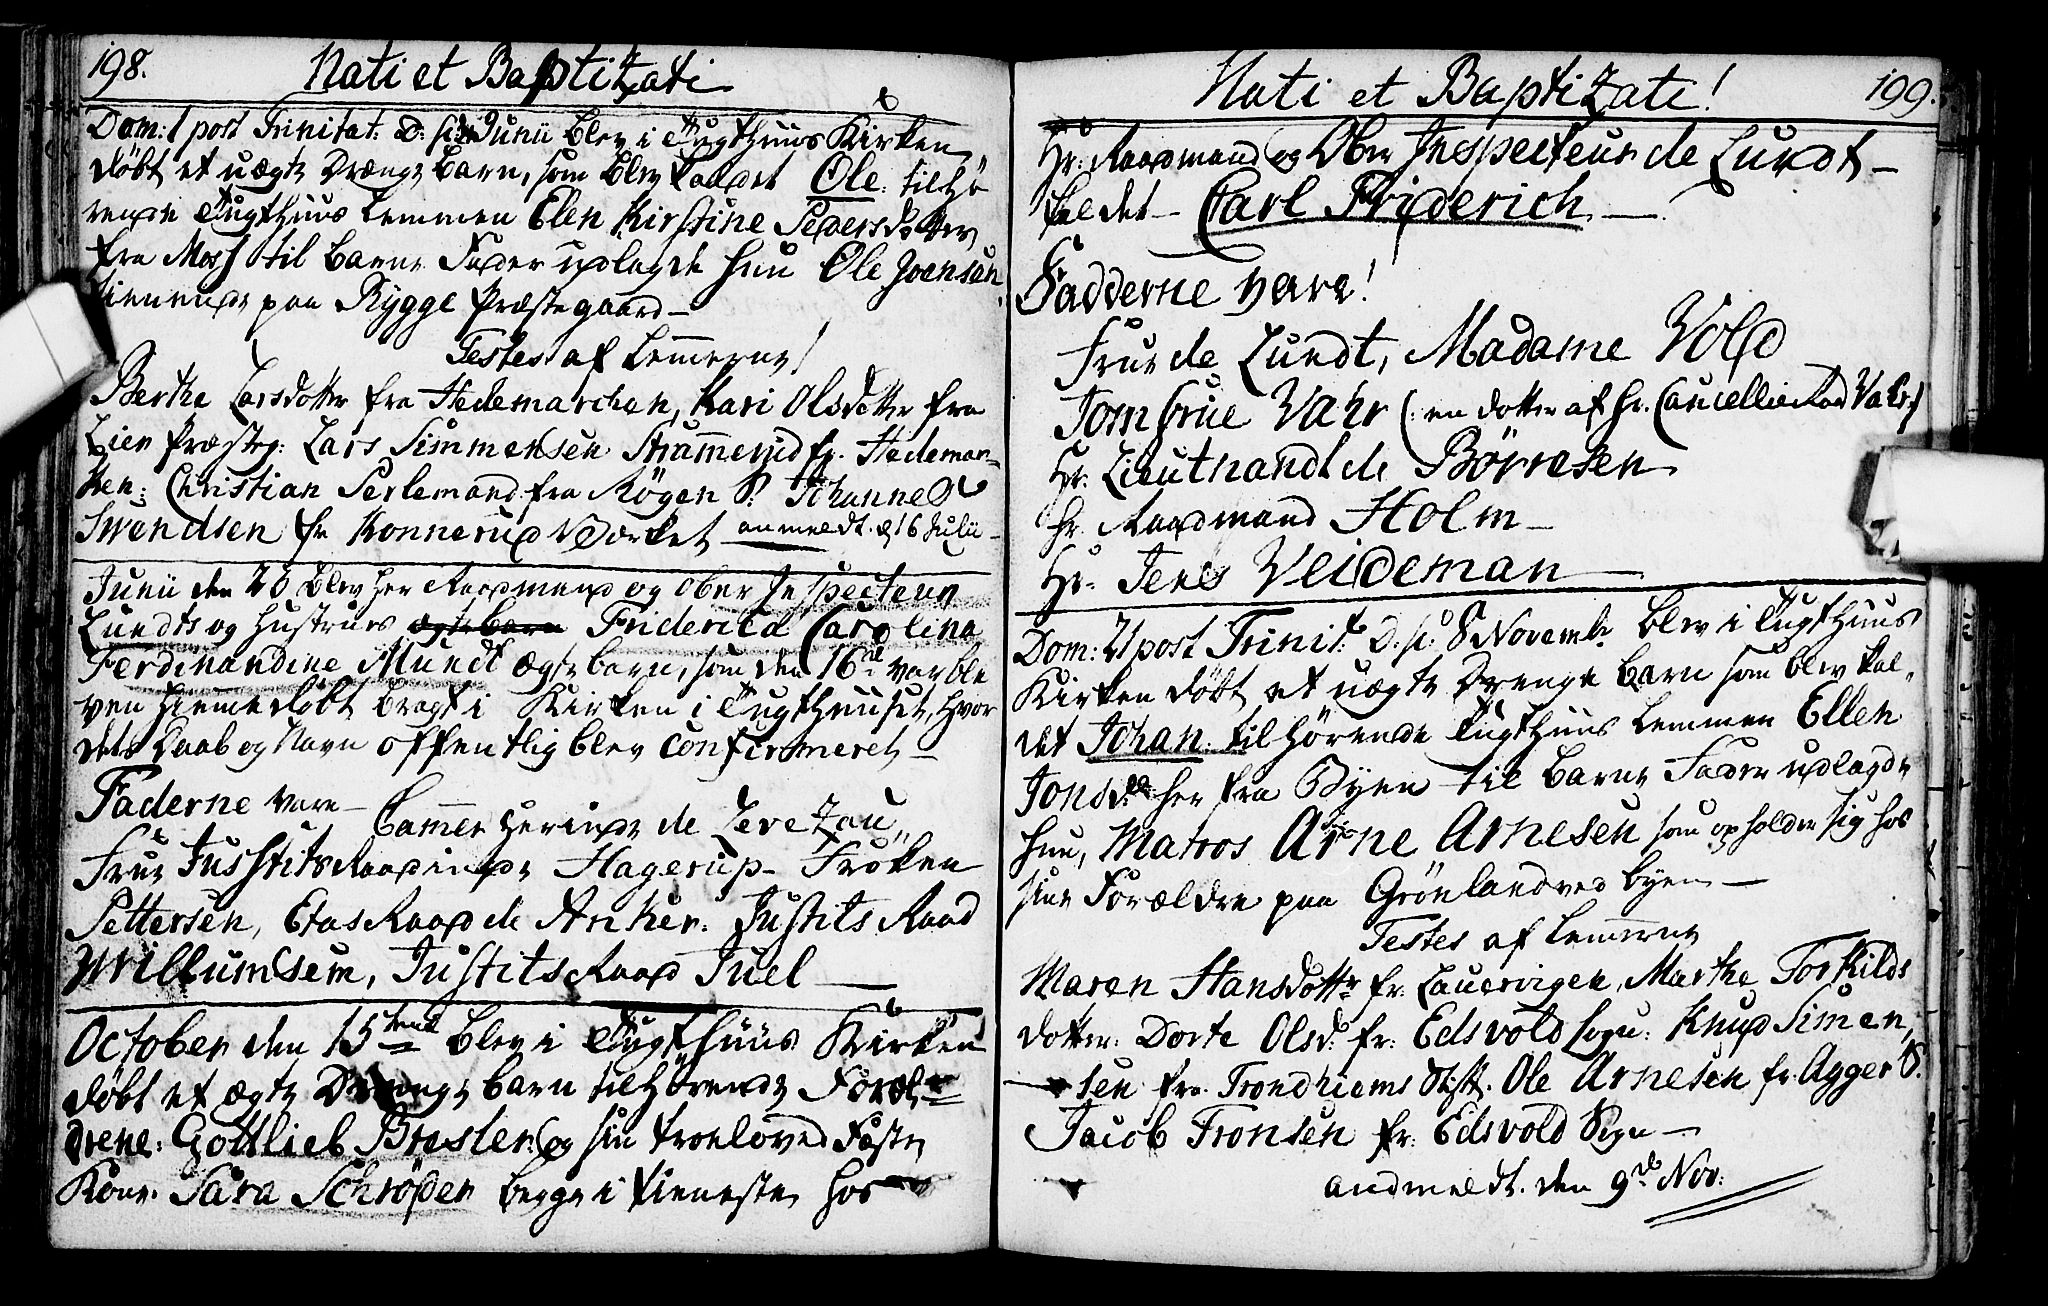 198.
Nati et Baptizati
Dom: 1 post Trinitat: D: Junii blev i Tugthuus Kirken
døbt et uægte Drenge barn, som blev kaldet Ole: tilhø
rende Tugthuus Lemmen Elen Kirstine Pedersdotter
fra Moss til barne Fader udlagde hun Ole Joensen
tienende paa Rygge Præstegaard —
Testes af Lemerne!
Berthe Larsdotter fra Hedemarchen, Kari Olsdotter fra
Lier Præsteg: Lars Simmensen Strammerud fr. Hedemar-
ken: Christian Perlemand fra Røgen S: Johannes
Swendsen fr Konnerud Værket anmeldt. d 16 Julii
Junii den 26 blev her Raadmand og Ober Inspecteur
Lundts og Hustrues ægte barn Friderica Carolina
Ferdinandine Mundt ægte barn, som den 16de var ble
ven hiemmedøbt bragt i Kirken i Tugthuuset, hvor
dets Daab og Navn offentlig blev confirmeret —
Faderne vare —
Cammer Herinde de Levetzau,,
Frue Justits Raadinde Hagerup — Frøken
Pettersen, Etas Raad de Anker: Justits Raad
Willumsem, Justits Raad Juel —
October den 15tende blev i Tugthuus Kirken
døbt et ægte Drenge barn tilhørende Foræl-
drene: Gottlieb Bresler og sin troeloved Fæste
Kone: Sara Schrøder begge i tieneste hos
199.
Nati et Baptizati!
Hr: Raadmand og Ober Inspecteur de Lundt —
kaldet — Carl Friderich —
Fadderne vare!
Frue de Lundt, Madame Vold
Jomfrue Vahr (: en dotter af Hr. Cancellie Raad Vahr:)
Hr. Lieutnandt de Børresen
Hr. Raadmand Holm —
Hr. Jens Veideman —
Dom: 21 post Trinit: D. s: 8 Novembr blev i Tugthuus
Kirken døbt et uægte Drenge barn som blev kal,,
det Johan: tilhørende Tugthuus Lemmen Ellen
Jonsd: her fra Byen til barne Fader udlagde
hun, Matros Arne Arnesen som opholder sig hos
sine Forældre paa Grønland ved byen —
Testes af Lemerne
Maren Hansdotter fr: Lauervigen, Marthe Torkilds
dotter: Dorte Olsd: fr: Edsvold Sogn: Knud Simen,,
sen fra Trondhiems Stift. Ole Arnesen fr. Agger S.
Jacob Tronsen fr: Edsvold Sogn —
andmeldt. den 9de Nov: